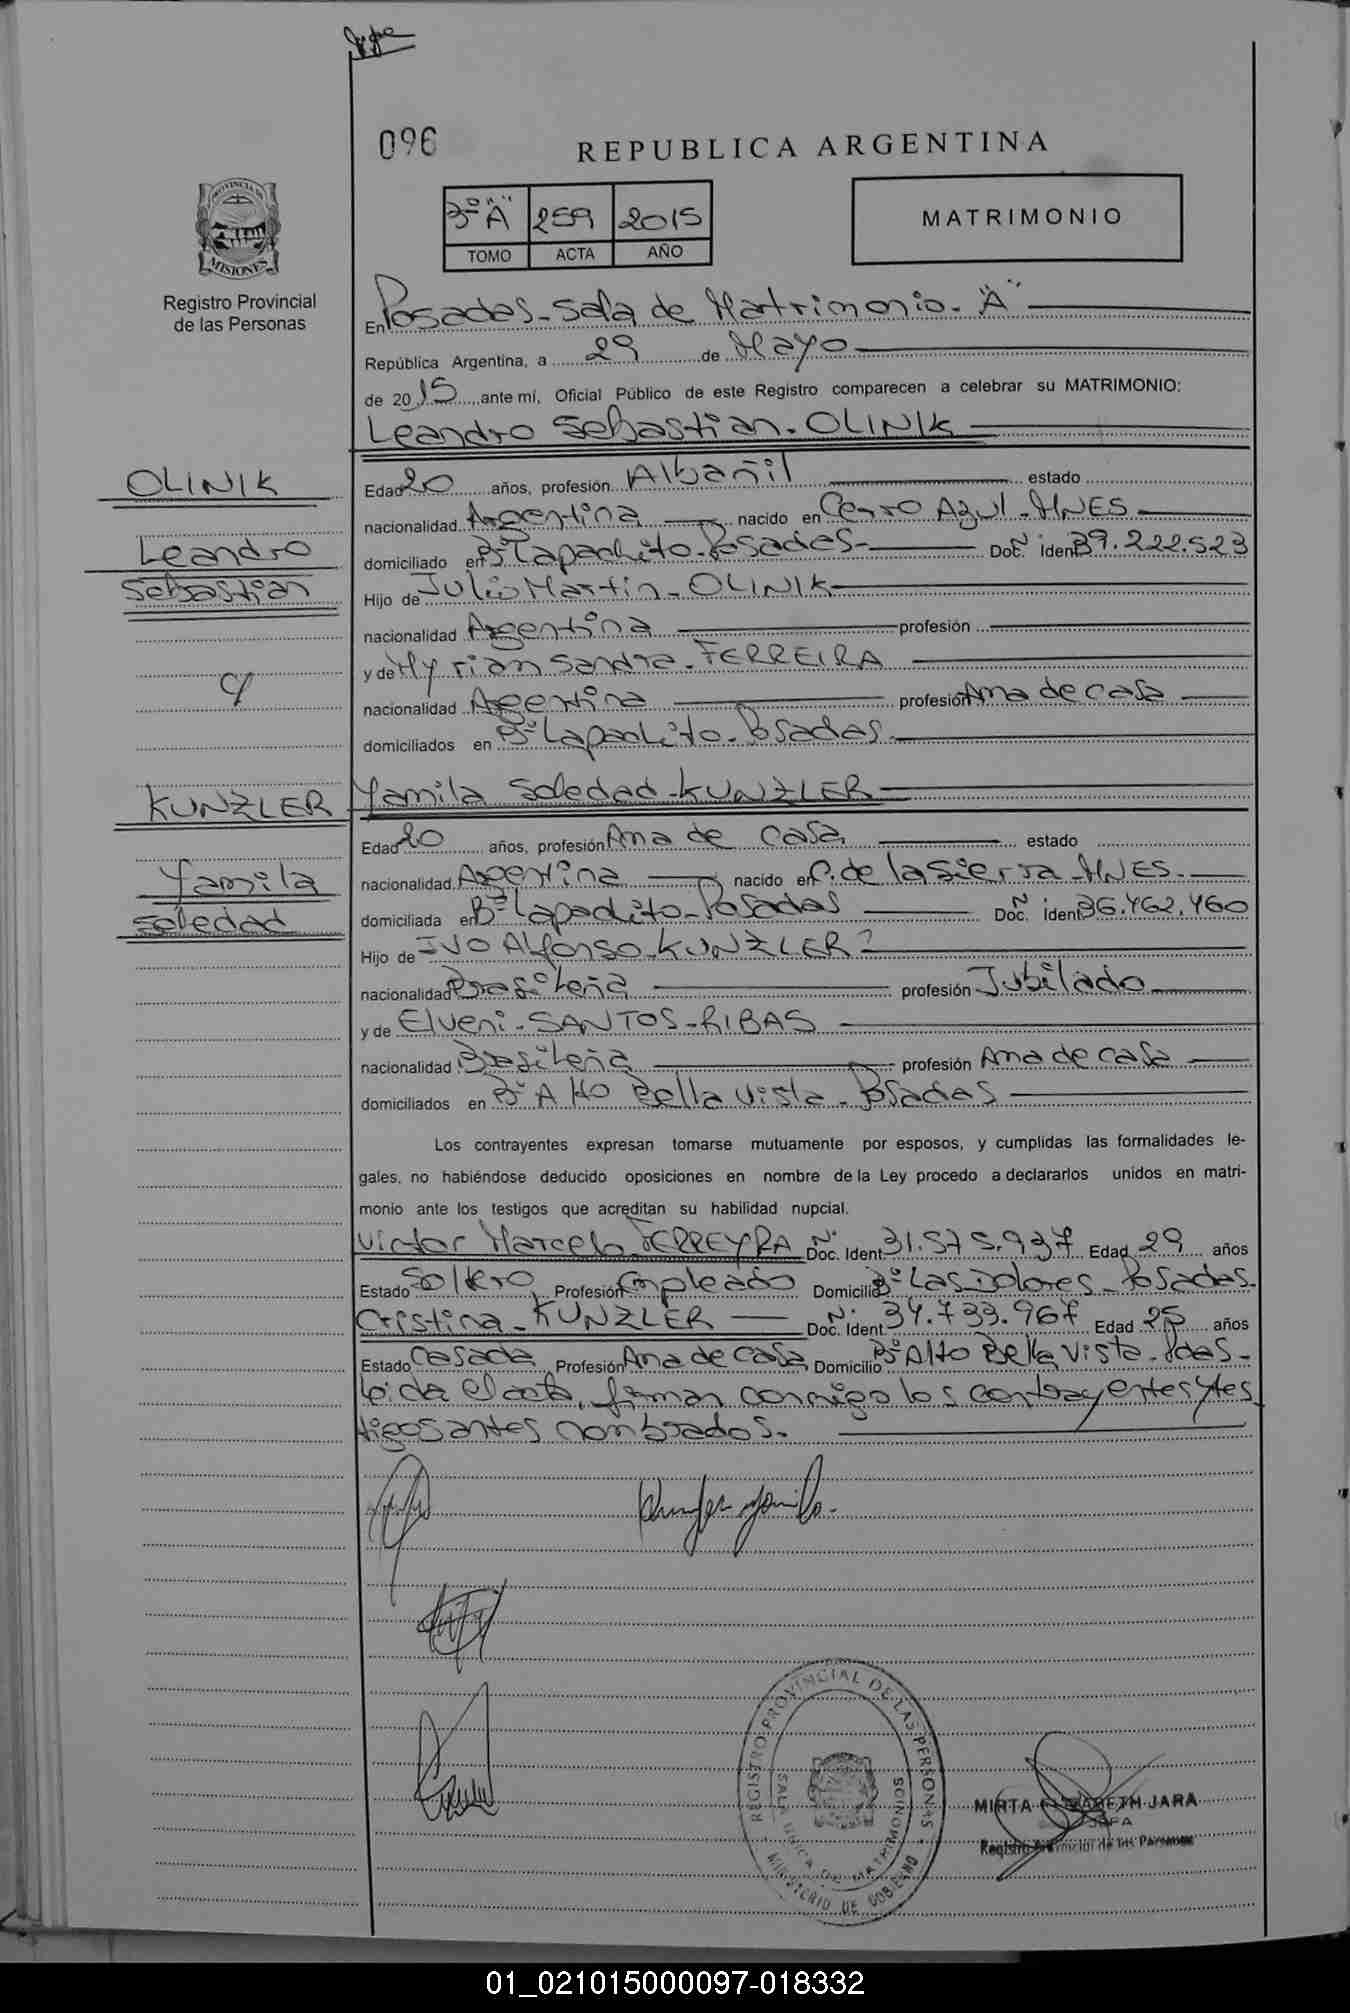 096
REPUBLICA ARGENTINA
3º "A" 259 2015
TOMO ACTA AÑO
MATRIMONIO
PROVINCIA DE
MISIONES
Registro Provincial
de las Personas
En Posadas - Sala de Matrimonio - "A"
República Argentina, a 29 de Mayo
de 2015 ante mí, Oficial Público de este Registro comparecen a celebrar su MATRIMONIO:
Leandro Sebastian - OLINIK
OLINIK
Leandro
Sebastian
c/
KUNZLER
Yamila
Soledad
Edad 20 años, profesión Albañil estado
nacionalidad Argentina nacido en Cerro Azul - MNES -
domiciliado en Bº Lapachito - Posadas - Doc. Nº Ident. 39.222.523
Hijo de Julio Martin - OLINIK
nacionalidad Argentina profesión
y de Myrian Sandra - FERREIRA
nacionalidad Argentina profesión Ama de casa
domiciliados en Bº Lapachito - Posadas
Yamila Soledad - KUNZLER
Edad 20 años, profesión Ama de casa estado
nacionalidad Argentina nacido en C. de la Sierra - MNES -
domiciliada en Bº Lapachito - Posadas Doc. Nº Ident. 36.462.460
Hijo de Ivo Alfonso - KUNZLER
nacionalidad Brasileña profesión Jubilado
y de Elveni - SANTOS - RIBAS
nacionalidad Brasileña profesión Ama de casa
domiciliados en Bº Alto Bella Vista - Posadas
Los contrayentes expresan tomarse mutuamente por esposos, y cumplidas las formalidades le-
gales, no habiéndose deducido oposiciones en nombre de la Ley procedo a declararlos unidos en matri-
monio ante los testigos que acreditan su habilidad nupcial.
Victor Marcelo FERREYRA Doc. Nº Ident. 31.575.937 Edad 29 años
Estado Soltero Profesión Empleado Domicilio Bº Las Dolores - Posadas -
Cristina - KUNZLER Doc. Nº Ident. 34.733.967 Edad 25 años
Estado Casada Profesión Ama de casa Domicilio Bº Alto Bella Vista - Pdas -
Leida el acta, firman conmigo los contrayentes y tes
tigos antes nombrados.
Kunzler Yamila
REGISTRO PROVINCIAL DE LAS PERSONAS
SALA UNICA DE MATRIMONIOS
MINISTERIO DE GOBIERNO
MIRTA ELIZABETH JARA
JEFA
Registro Provincial de las Personas
01_021015000097-018332